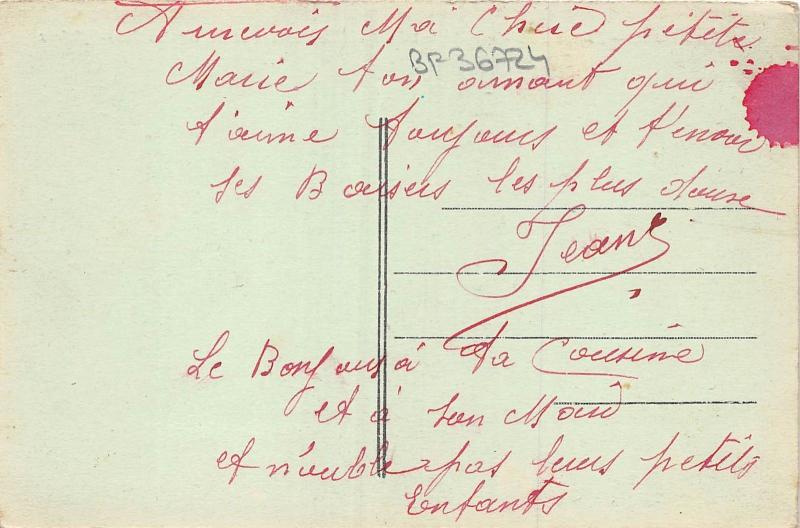 Aurevois Ma Cheie petite
BP36724
Marie ton amant qui
t'aime toujours et t'envoi
ses Baisers les plus douse
Jean
Le Bonjous à ta Cousine
et à son Marie
et n'ouble pas leurs petits
Enfants